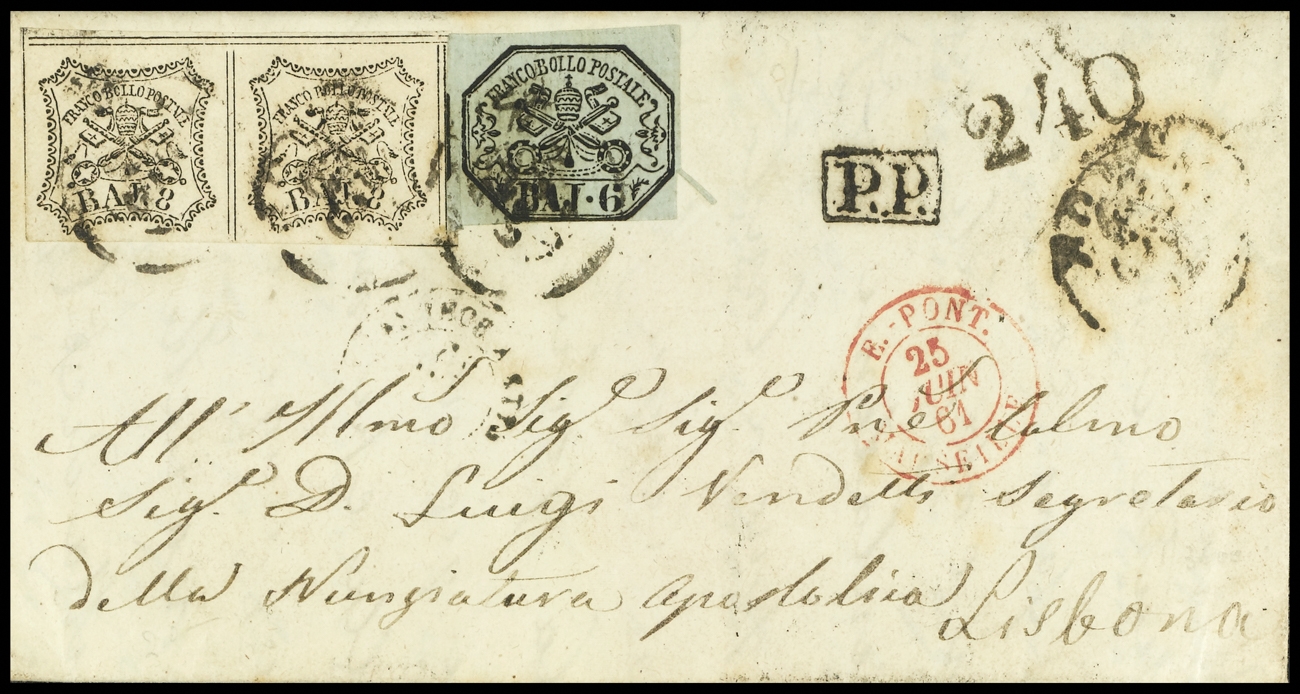 FRANCO BOLLO POSTALE
BAJ. 8
FRANCO BOLLO POSTALE
BAJ. 8
FRANCO BOLLO POSTALE
BAJ. 6
240
P.P.
E.-PONT.
25
JUIN
61
MARSEILLE
All' Illmo Sig. Sig. Pne Colmo
Sig. D. Luigi Vendetti Segretario
della Nunziatura apostolica
Lisbona